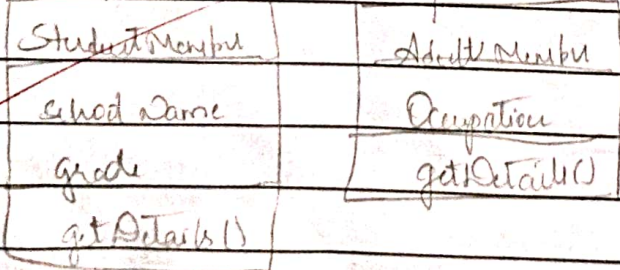 StudentMember
school Name
grade
getDetails()
Adult Member
Occupation
getDetails()